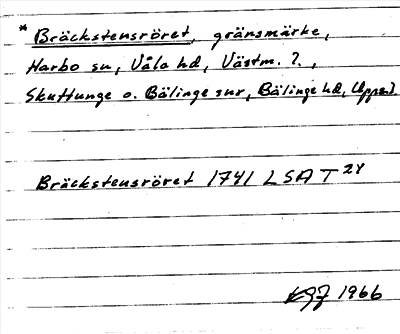 * Bräckstensröret, gränsmärke,
Harbo sn, Våla hd, Västm. l.,
Skuttunge o. Bälinge snr, Bälinge hd, Upps. l.
Bräckstensröret 1741 LSA T 24
1966